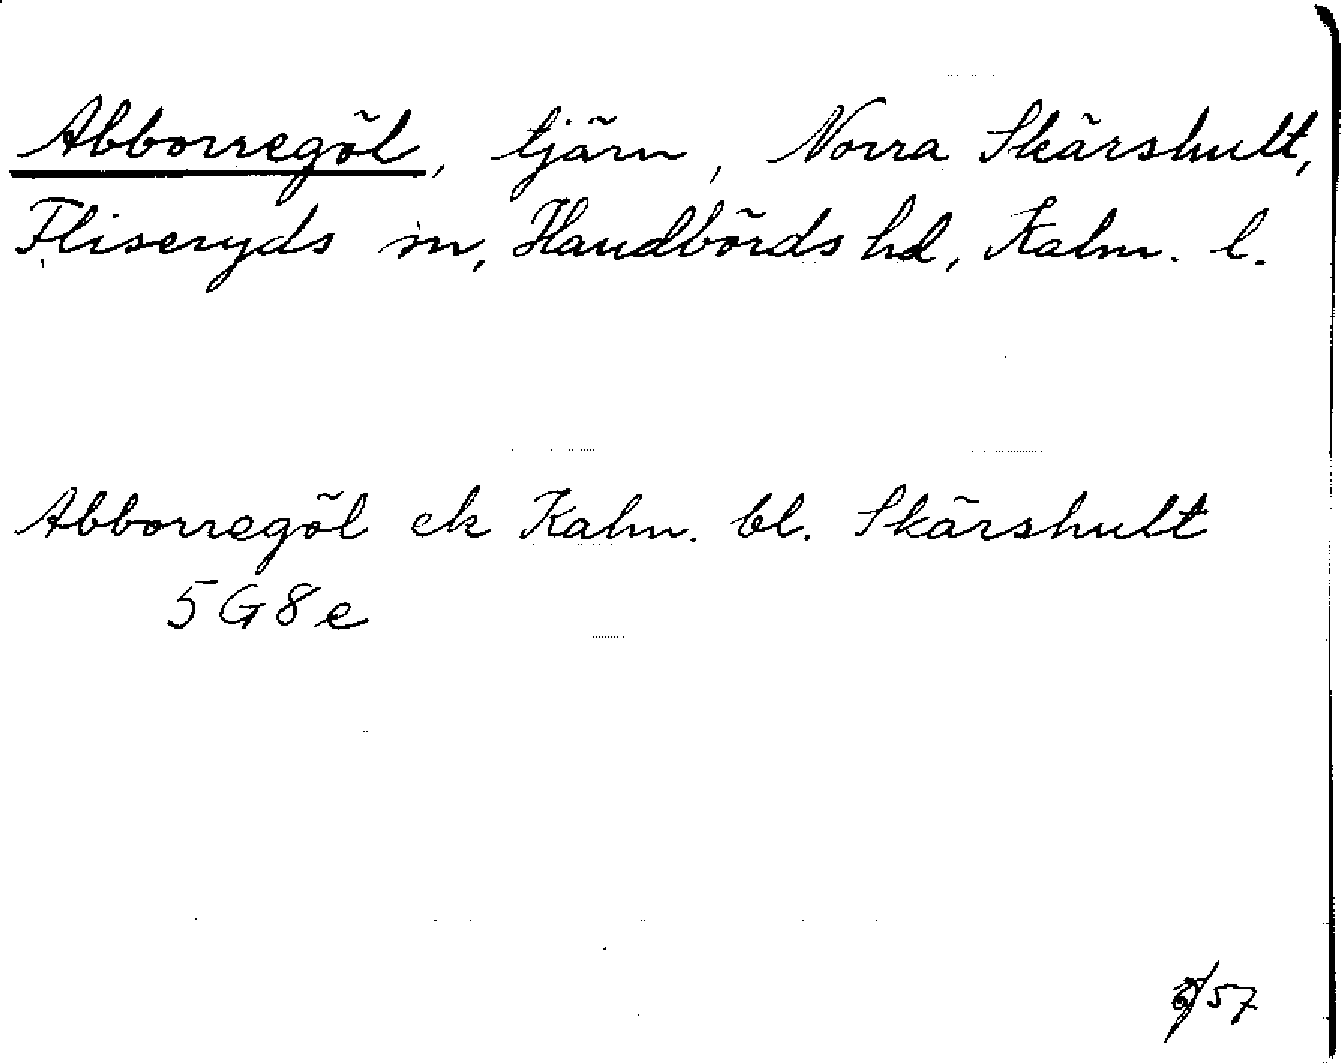 Abborregöl, tjärn, Norra Skärshult,
Fliseryds sn, Handbörds hd, Kalm. l.
Abborregöl ek Kalm. bl. Skärshult
5G8e
57